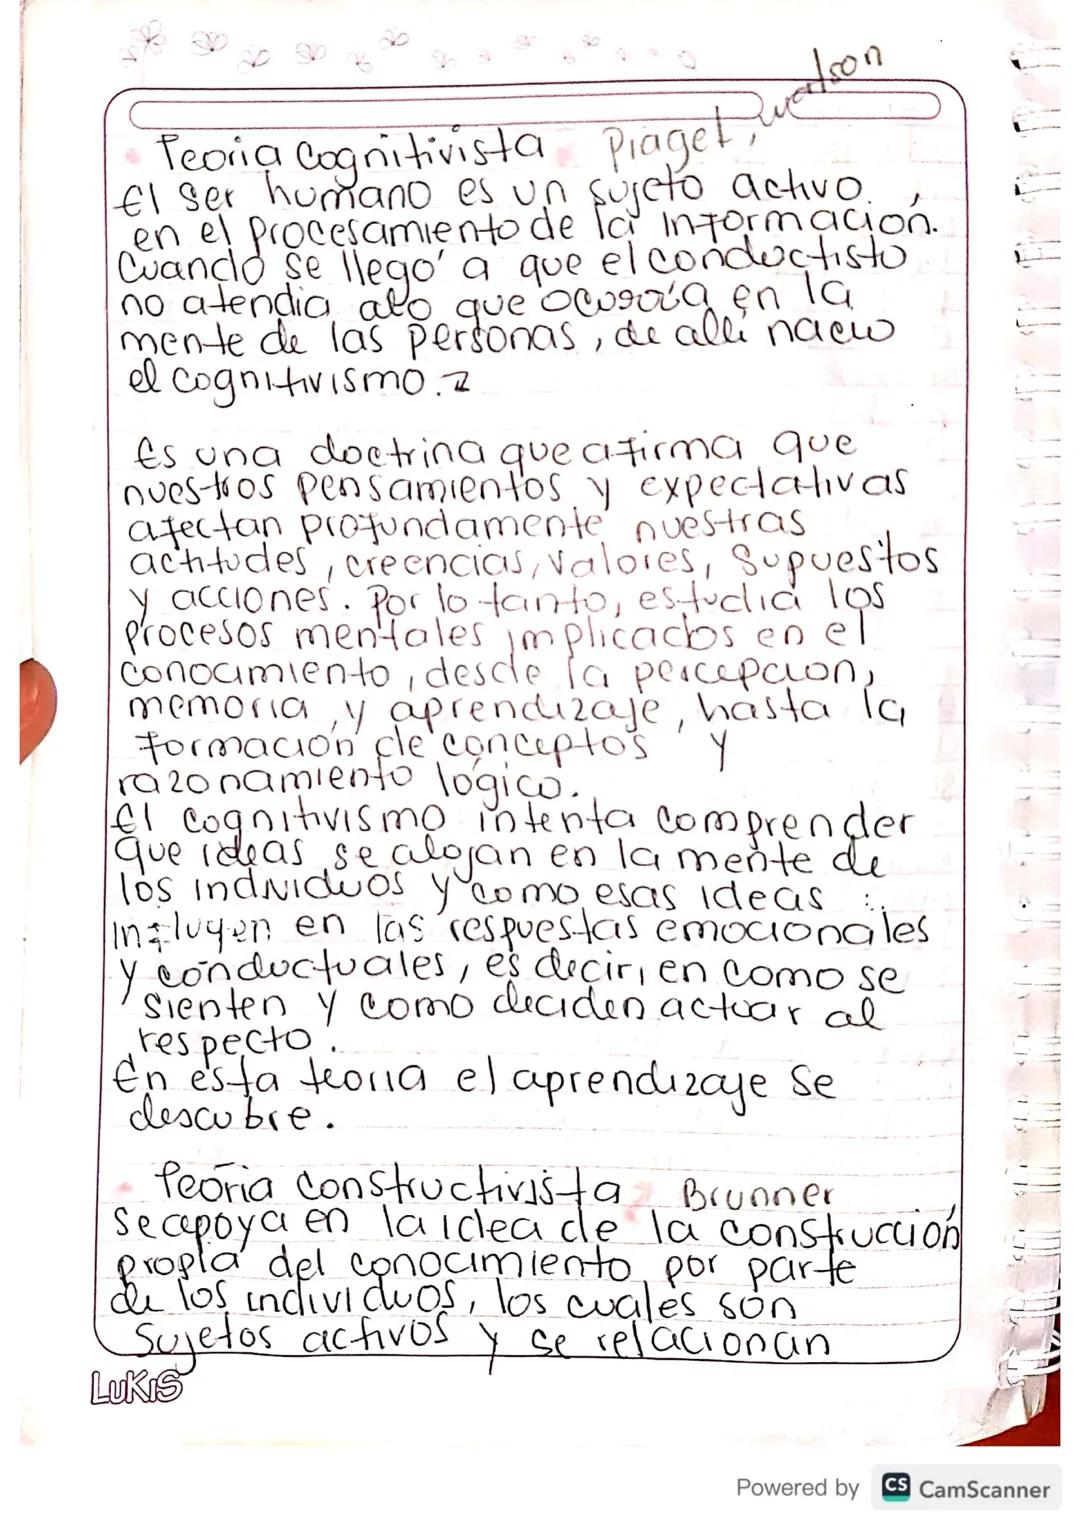 Teoria Cognitivista Piaget, watson
El ser humano es un sujeto activo
en el procesamiento de la información.
Cuando se llegó a que el conductisto
no atendia alo que ocurria en la
mente de las personas, de alli nacio
el cognitivismo.
Es una doctrina que afirma que
nuestros pensamientos y expectativas
afectan profundamente nuestras
actitudes, creencias, valores, supuestos
y acciones. Por lo tanto, estudia los
procesos mentales implicados en el
conocimiento, desde la percepcion,
memoria, y aprendizaje, hasta la
formación de conceptos y
razonamiento lógico.
El cognitivismo intenta comprender
que ideas se alojan en la mente de
los individuos y como esas ideas
influyen en las respuestas emocionales
y conductuales, es decir, en como se
sienten y como deciden actuar al
respecto.
En esta teoria el aprendizaje se
descubre.
Teoria constructivista Brunner
se apoya en la idea de la construcción
propia del conocimiento por parte
de los individuos, los cuales son
sujetos activos y se relacionan
LUKIS
Powered by CS CamScanner